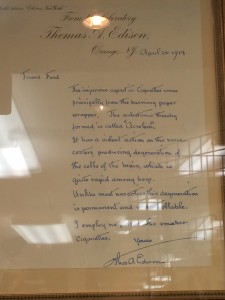 From the Laboratory
Thomas A. Edison,
Orange, N.J. April 26 1914
Friend Ford
The injurious agent in Cigarettes comes
principally from the burning paper
wrapper. The substance thereby
formed is called "Acrolein".
It has a violent action on the nerve
centers producing degeneration of
the cells of the brain, which is
quite rapid among boys.
Unlike most narcotics this degeneration
is permanent and
I employ no person who smokes
Cigarettes.
Yours
Thos A Edison